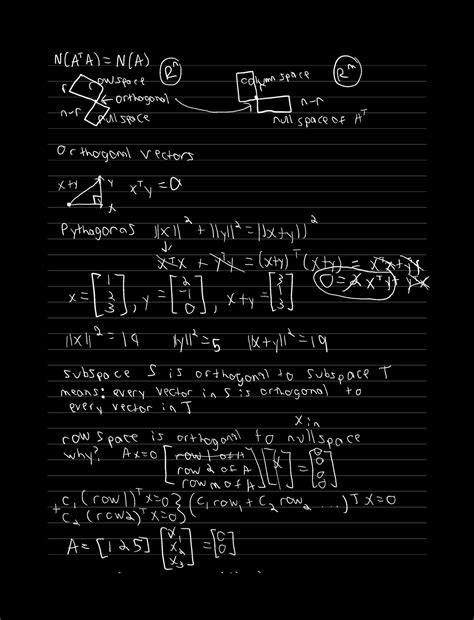 N(AᵀA) = N(A)
r row space Rⁿ column space Rᵐ
← orthogonal
n-r null space n-r
null space of Aᵀ
Orthogonal vectors
x+y y x xᵀy = 0
Pythagoras ||x||² + ||y||² = ||x+y||²
xᵀx + yᵀy = (x+y)ᵀ(x+y) = xᵀx + yᵀy
0 = 2xᵀy
x = [1 2 3], y = [2 -1 0], x+y = [3 1 3]
||x||² = 14 ||y||² = 5 ||x+y||² = 19
subspace S is orthogonal to subspace T
means: every vector in S is orthogonal to
every vector in T
row space is orthogonal to nullspace
x in
why? Ax=0 [row 1 of A row 2 of A row m of A] [x] = [0 0 0 0]
+ c₁(row1)ᵀx=0 c₂(row2)ᵀx=0 } (c₁row₁ + c₂row₂ ...)ᵀx=0
A = [1 2 5] [x₁ x₂ x₃] = [0 0]